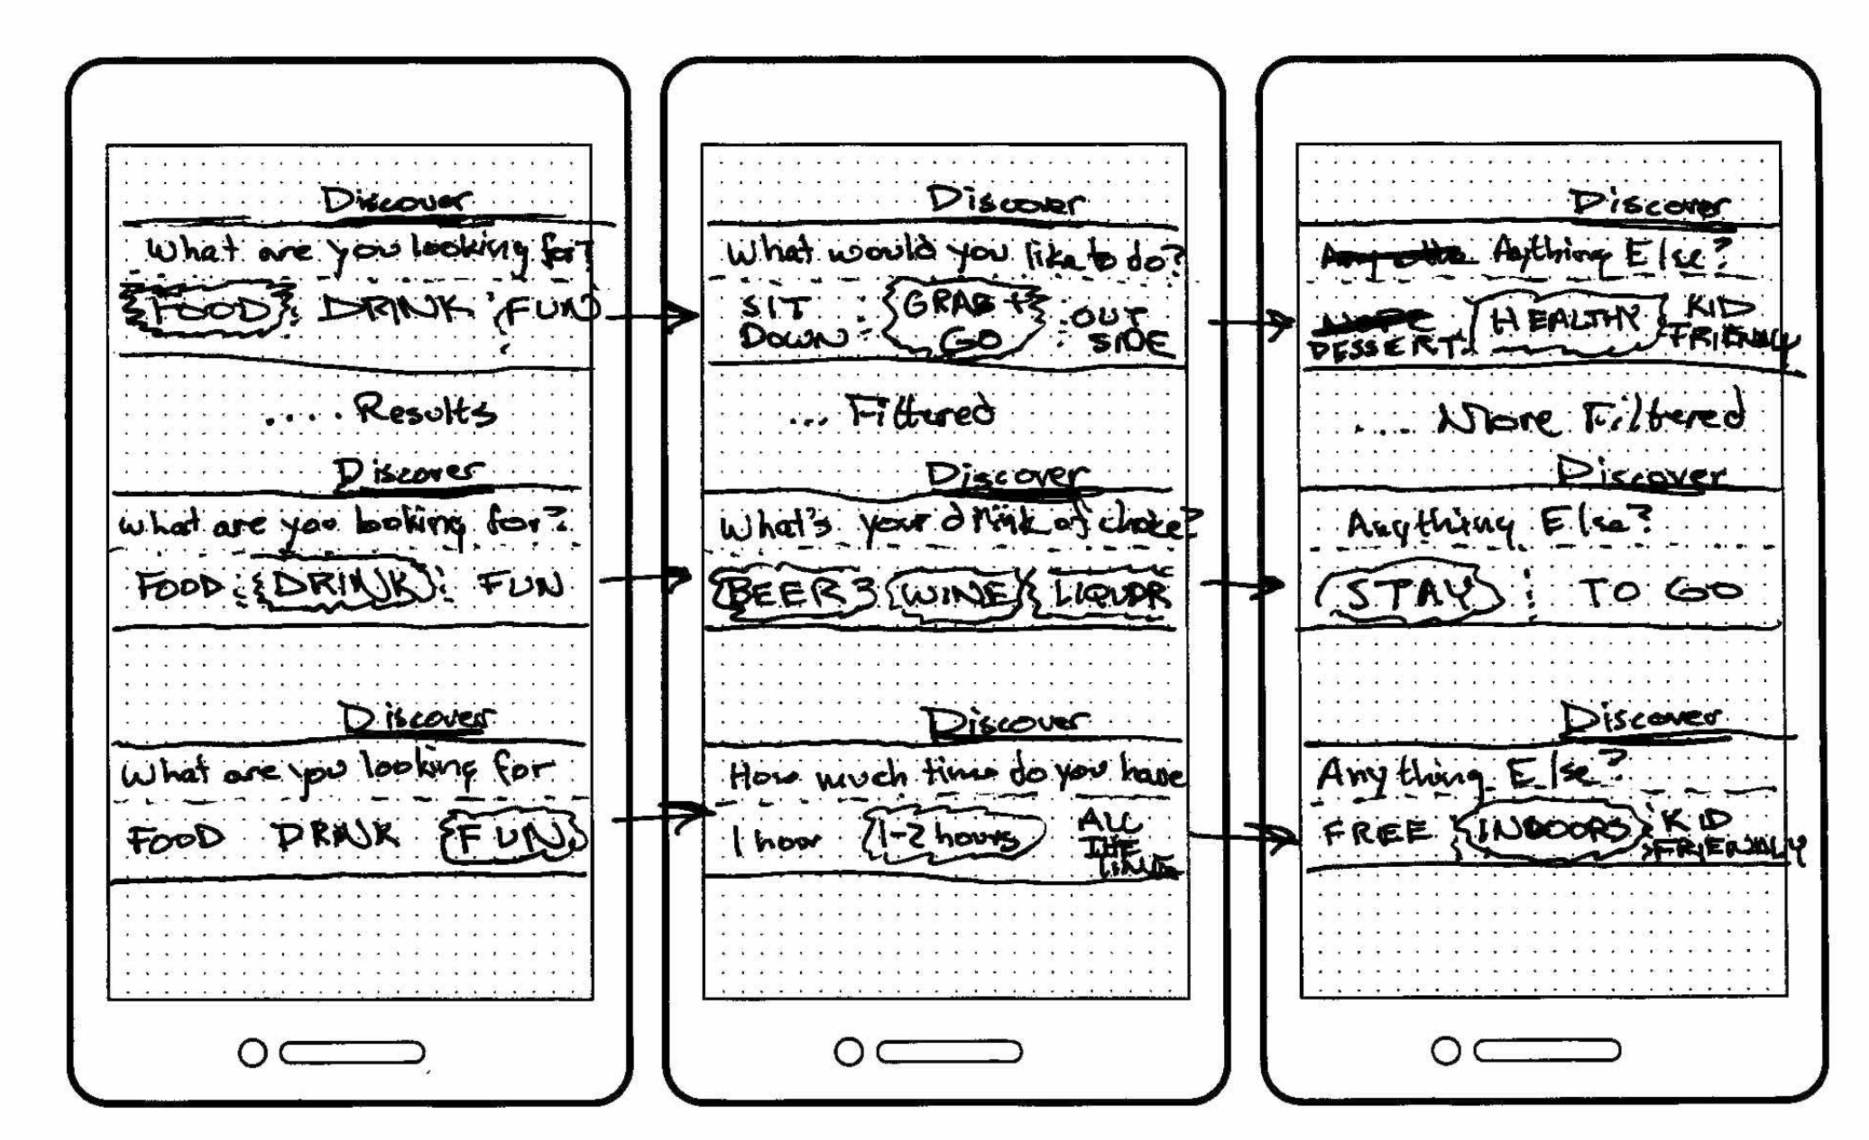 Discover
What are you looking for?
FOOD DRINK FUN
.... Results
Discover
what are you looking for?
FOOD DRINK FUN
Discover
What are you looking for
FOOD DRINK FUN
Discover
What would you like to do?
SIT DOWN GRAB + GO OUT SIDE
... Filtered
Discover
What's your drink of choice?
BEER WINE LIQUOR
Discover
How much time do you have
1 hour 1-2 hours ALL THE TIME
Discover
Anything Else?
DESSERT HEALTHY KID FRIENDLY
.... More Filtered
Discover
Anything Else?
STAY TO GO
Discover
Anything Else?
FREE INDOORS KID FRIENDLY